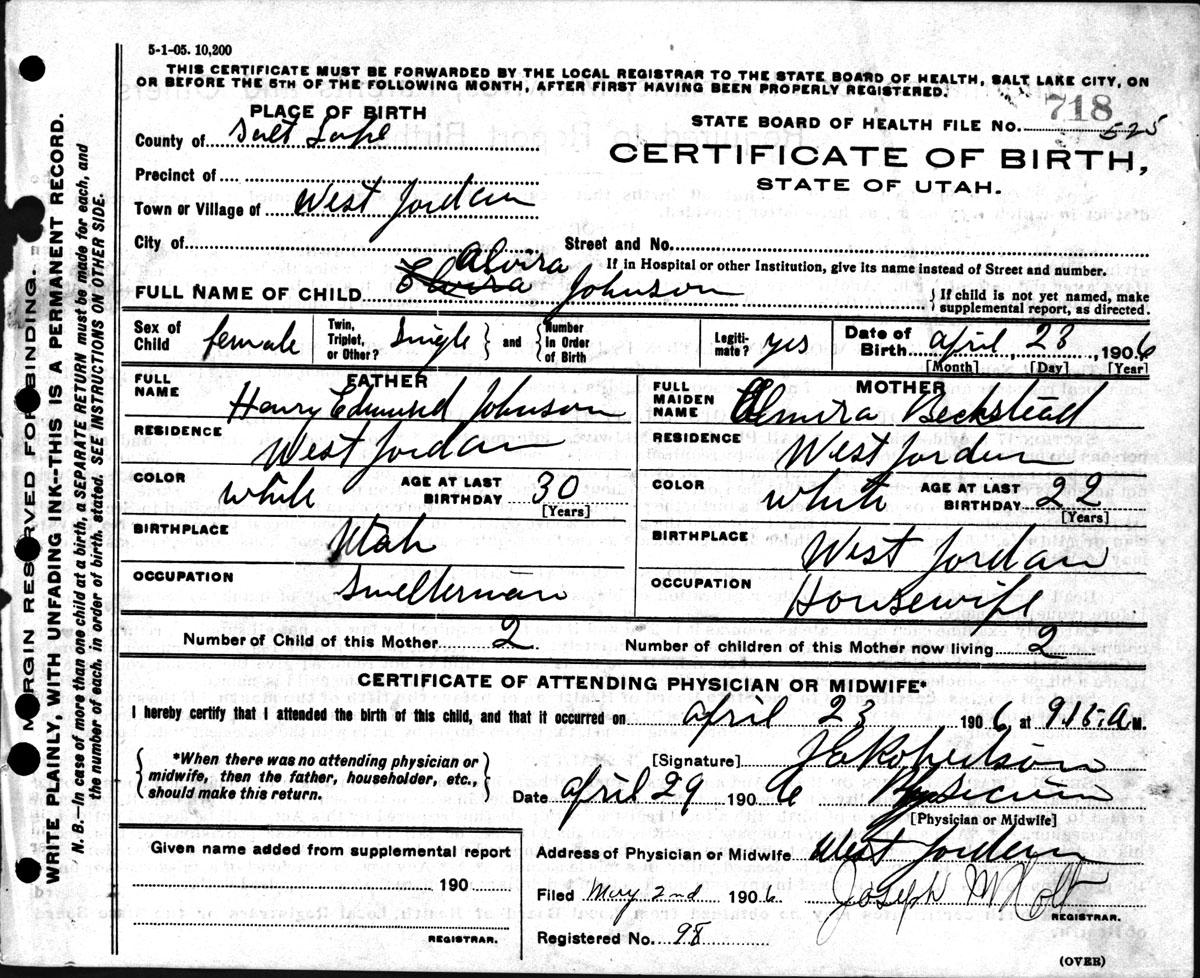 5-1-05. 10,200
THIS CERTIFICATE MUST BE FORWARDED BY THE LOCAL REGISTRAR TO THE STATE BOARD OF HEALTH, SALT LAKE CITY, ON
OR BEFORE THE 5TH OF THE FOLLOWING MONTH, AFTER FIRST HAVING BEEN PROPERLY REGISTERED.
PLACE OF BIRTH
718
STATE BOARD OF HEALTH FILE NO. 525
County of Salt Lake
CERTIFICATE OF BIRTH,
STATE OF UTAH.
Precinct of
Town or Village of West Jordan
City of Street and No.
If in Hospital or other Institution, give its name instead of Street and number.
Alvira
FULL NAME OF CHILD Elvira Johnson { If child is not yet named, make supplemental report, as directed.
Sex of Child female Twin, Triplet, or Other? Single } and { Number in Order of Birth Legiti- mate? yes Date of Birth April, 23, 1906
[Month] [Day] [Year]
FATHER
FULL NAME Henry Edmund Johnson
RESIDENCE West Jordan
COLOR white AGE AT LAST BIRTHDAY 30
[Years]
BIRTHPLACE Utah
OCCUPATION Smelterman
MOTHER
FULL MAIDEN NAME Elmira Beckstead
RESIDENCE West Jorden
COLOR white AGE AT LAST BIRTHDAY 22
[Years]
BIRTHPLACE West Jordan
OCCUPATION Housewife
Number of Child of this Mother 2 Number of children of this Mother now living 2
CERTIFICATE OF ATTENDING PHYSICIAN OR MIDWIFE*
I hereby certify that I attended the birth of this child, and that it occurred on April 23 1906 at 9.15.A M.
{ *When there was no attending physician or midwife, then the father, householder, etc., should make this return. }
[Signature] Robertson
Date April 29 1906 Physician
[Physician or Midwife]
Given name added from supplemental report
190
REGISTRAR.
Address of Physician or Midwife West Jordern
Filed May 2nd 1906 Joseph M Holt
REGISTRAR.
Registered No. 98
(OVER)
MARGIN RESERVED FOR BINDING.
WRITE PLAINLY, WITH UNFADING INK--THIS IS A PERMANENT RECORD.
N. B.—In case of more than one child at a birth, a SEPARATE RETURN must be made for each, and
the number of each, in order of birth, stated. SEE INSTRUCTIONS ON OTHER SIDE.